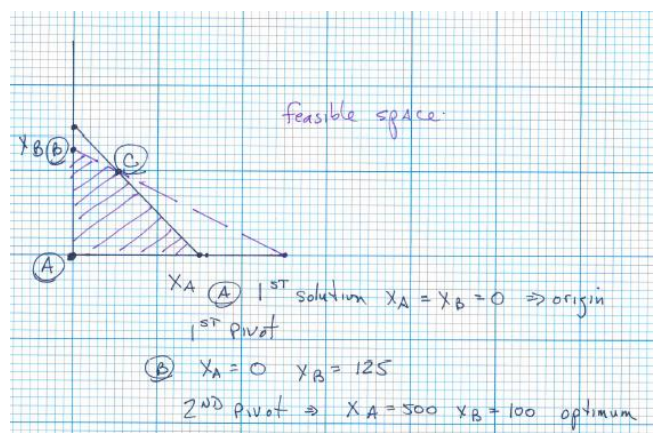 feasible space.
X B Ⓑ
Ⓒ
Ⓐ
X A Ⓐ 1ST solution X A = X B = 0 ⇒ origin
1ST Pivot
Ⓑ X A = 0 X B = 125
2ND Pivot ⇒ X A = 500 X B = 100 optimum